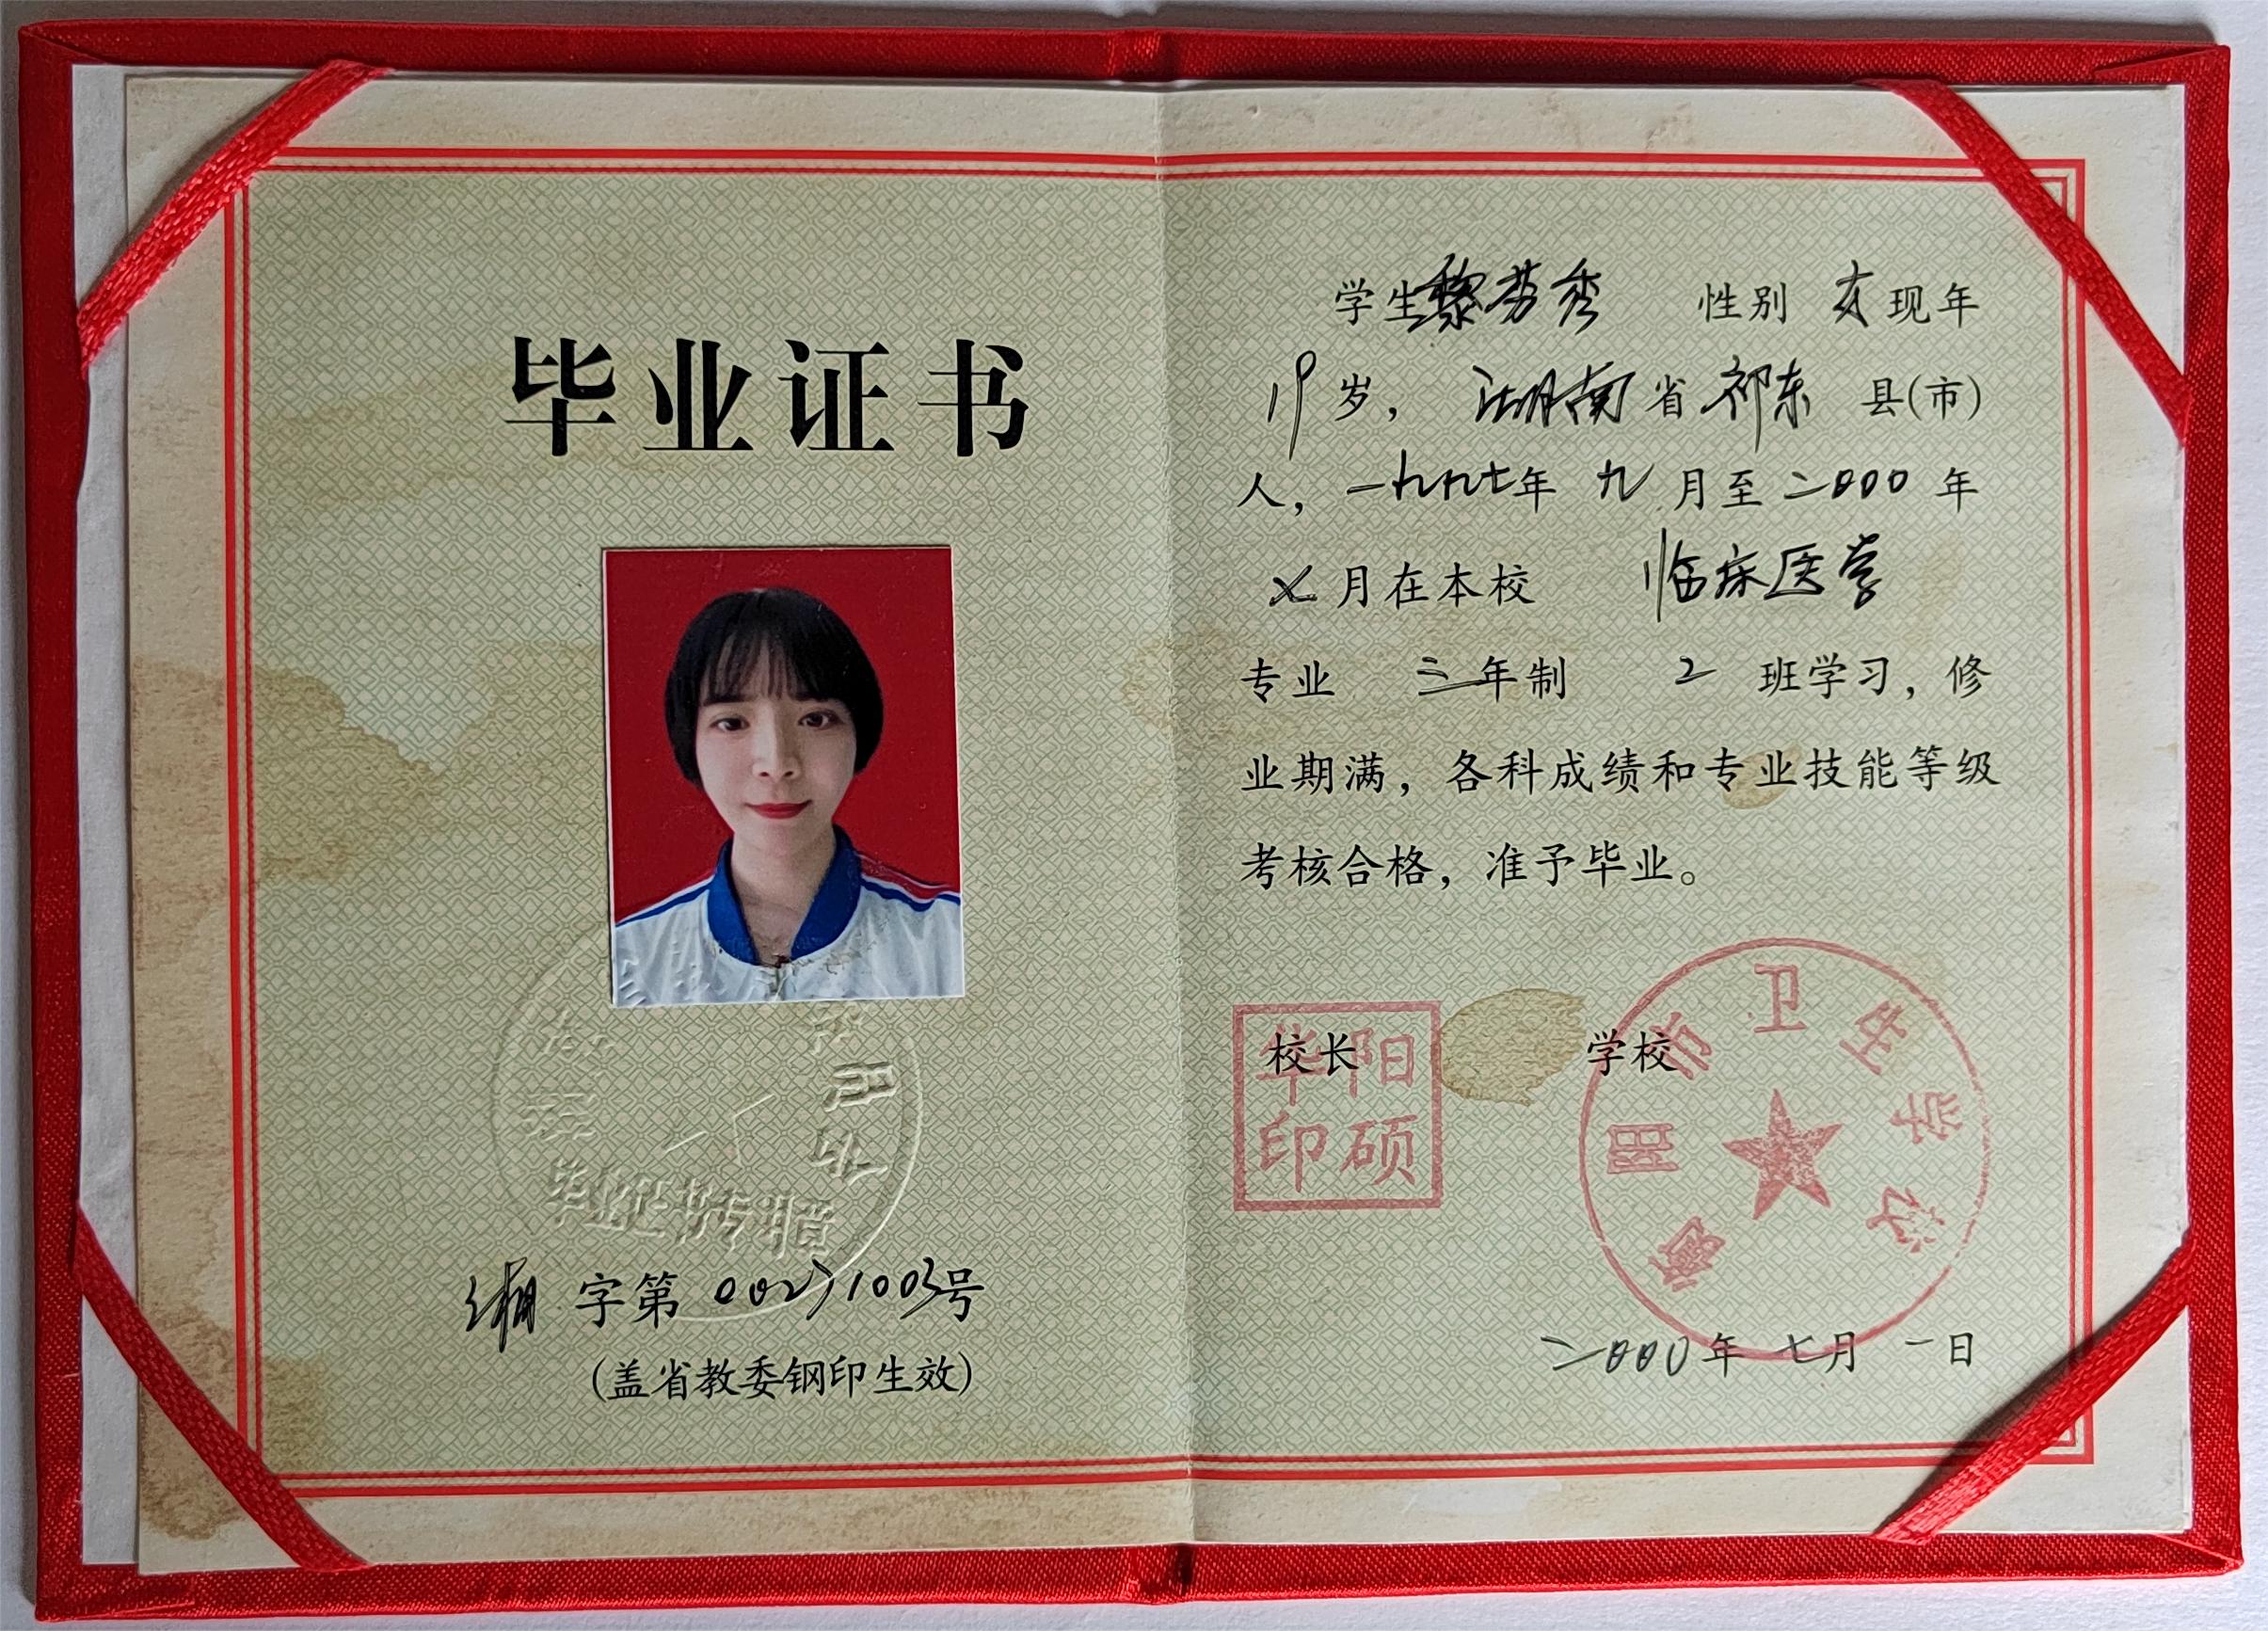 毕业证书
毕业证书专用章
湘 字第 00271003号
(盖省教委钢印生效)
学生黎芳秀 性别 女 现年
19 岁， 湖南 省 祁东 县(市)
人，一九九七年 九 月至二000 年
七 月在本校 临床医学
专业 三 年制 2 班学习，修
业期满，各科成绩和专业技能等级
考核合格，准予毕业。
校长 学校
华阳
印硕
衡阳市卫生学校
二000年 七月 一日